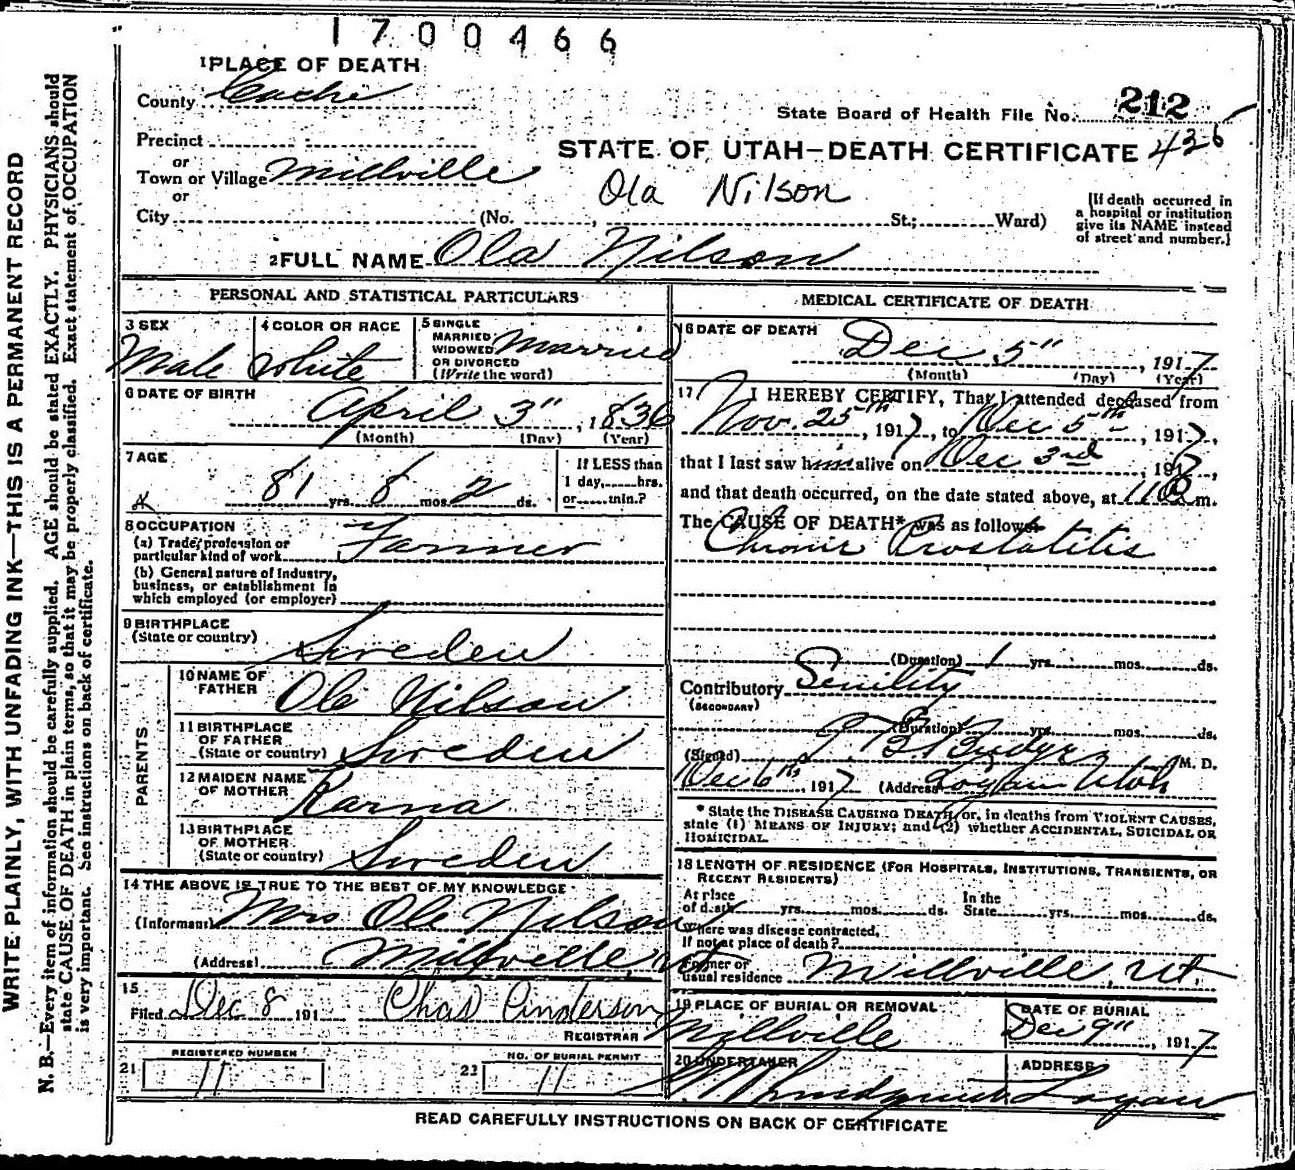 1700466
1 PLACE OF DEATH
County Cache
State Board of Health File No. 212
Precinct
or
STATE OF UTAH—DEATH CERTIFICATE 426
Town or Village Millville
or
Ola Nilson
City (No. , St.; Ward)
[If death occurred in
a hospital or institution
give its NAME instead
of street and number.]
2 FULL NAME Ola Nilson
PERSONAL AND STATISTICAL PARTICULARS
3 SEX
Male
4 COLOR OR RACE
White
5 SINGLE
MARRIED
WIDOWED
OR DIVORCED
(Write the word)
Married
6 DATE OF BIRTH
April 3", 1836
(Month) (Day) (Year)
7 AGE
81 yrs. 8 mos. 2 ds.
If LESS than
1 day, hrs.
or min.?
8 OCCUPATION
(a) Trade, profession or
particular kind of work Farmer
(b) General nature of Industry,
business, or establishment in
which employed (or employer)
9 BIRTHPLACE
(State or country) Sweden
PARENTS
10 NAME OF
FATHER Ole Nilson
11 BIRTHPLACE
OF FATHER
(State or country) Sweden
12 MAIDEN NAME
OF MOTHER Karna
13 BIRTHPLACE
OF MOTHER
(State or country) Sweden
14 THE ABOVE IS TRUE TO THE BEST OF MY KNOWLEDGE
(Informant) Mrs Ole Nilson
(Address) Millville, Ut
15
Filed Dec 8 191 Chas Anderson
REGISTRAR
REGISTERED NUMBER
21 11
NO. OF BURIAL PERMIT
22 11
MEDICAL CERTIFICATE OF DEATH
16 DATE OF DEATH
Dec 5", 1917
(Month) (Day) (Year)
17 I HEREBY CERTIFY, That I attended deceased from
Nov. 25th, 1917, to Dec 5th, 1917,
that I last saw him alive on Dec 3rd, 1917,
and that death occurred, on the date stated above, at 11 m.
The CAUSE OF DEATH* was as follows:
Chronic Prostatitis
(Duration) 1 yrs. mos. ds.
Contributory Senility
(SECONDARY)
(Duration) yrs. mos. ds.
(Signed) Budge, M. D.
Dec 6th, 1917 (Address) Logan Utah
*State the DISEASE CAUSING DEATH, or, in deaths from VIOLENT CAUSES,
state (1) MEANS OF INJURY; and (2) whether ACCIDENTAL, SUICIDAL OR
HOMICIDAL.
18 LENGTH OF RESIDENCE (FOR HOSPITALS, INSTITUTIONS, TRANSIENTS, OR
RECENT RESIDENTS)
At place
of death yrs. mos. ds.
In the
State yrs. mos. ds.
Where was disease contracted,
if not at place of death?
Former or
usual residence Millville, Ut.
19 PLACE OF BURIAL OR REMOVAL
Millville
DATE OF BURIAL
Dec 9", 1917
20 UNDERTAKER
ADDRESS
Logan
READ CAREFULLY INSTRUCTIONS ON BACK OF CERTIFICATE
WRITE PLAINLY, WITH UNFADING INK—THIS IS A PERMANENT RECORD
N. B.—Every item of information should be carefully supplied. AGE should be stated EXACTLY. PHYSICIANS should
state CAUSE OF DEATH in plain terms, so that it may be properly classified. Exact statement of OCCUPATION
is very important. See instructions on back of certificate.